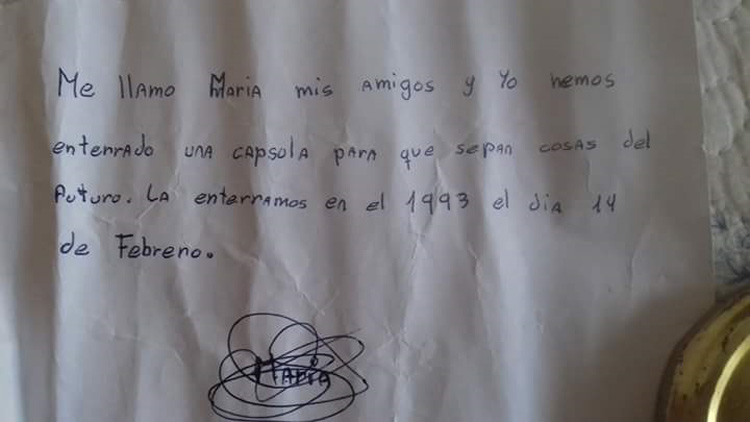 Me llamo Maria mis amigos y Yo hemos
enterrado una capsola para que sepan cosas del
Futuro. La enterramos en el 1993 el dia 14
de Febrero.
Maria